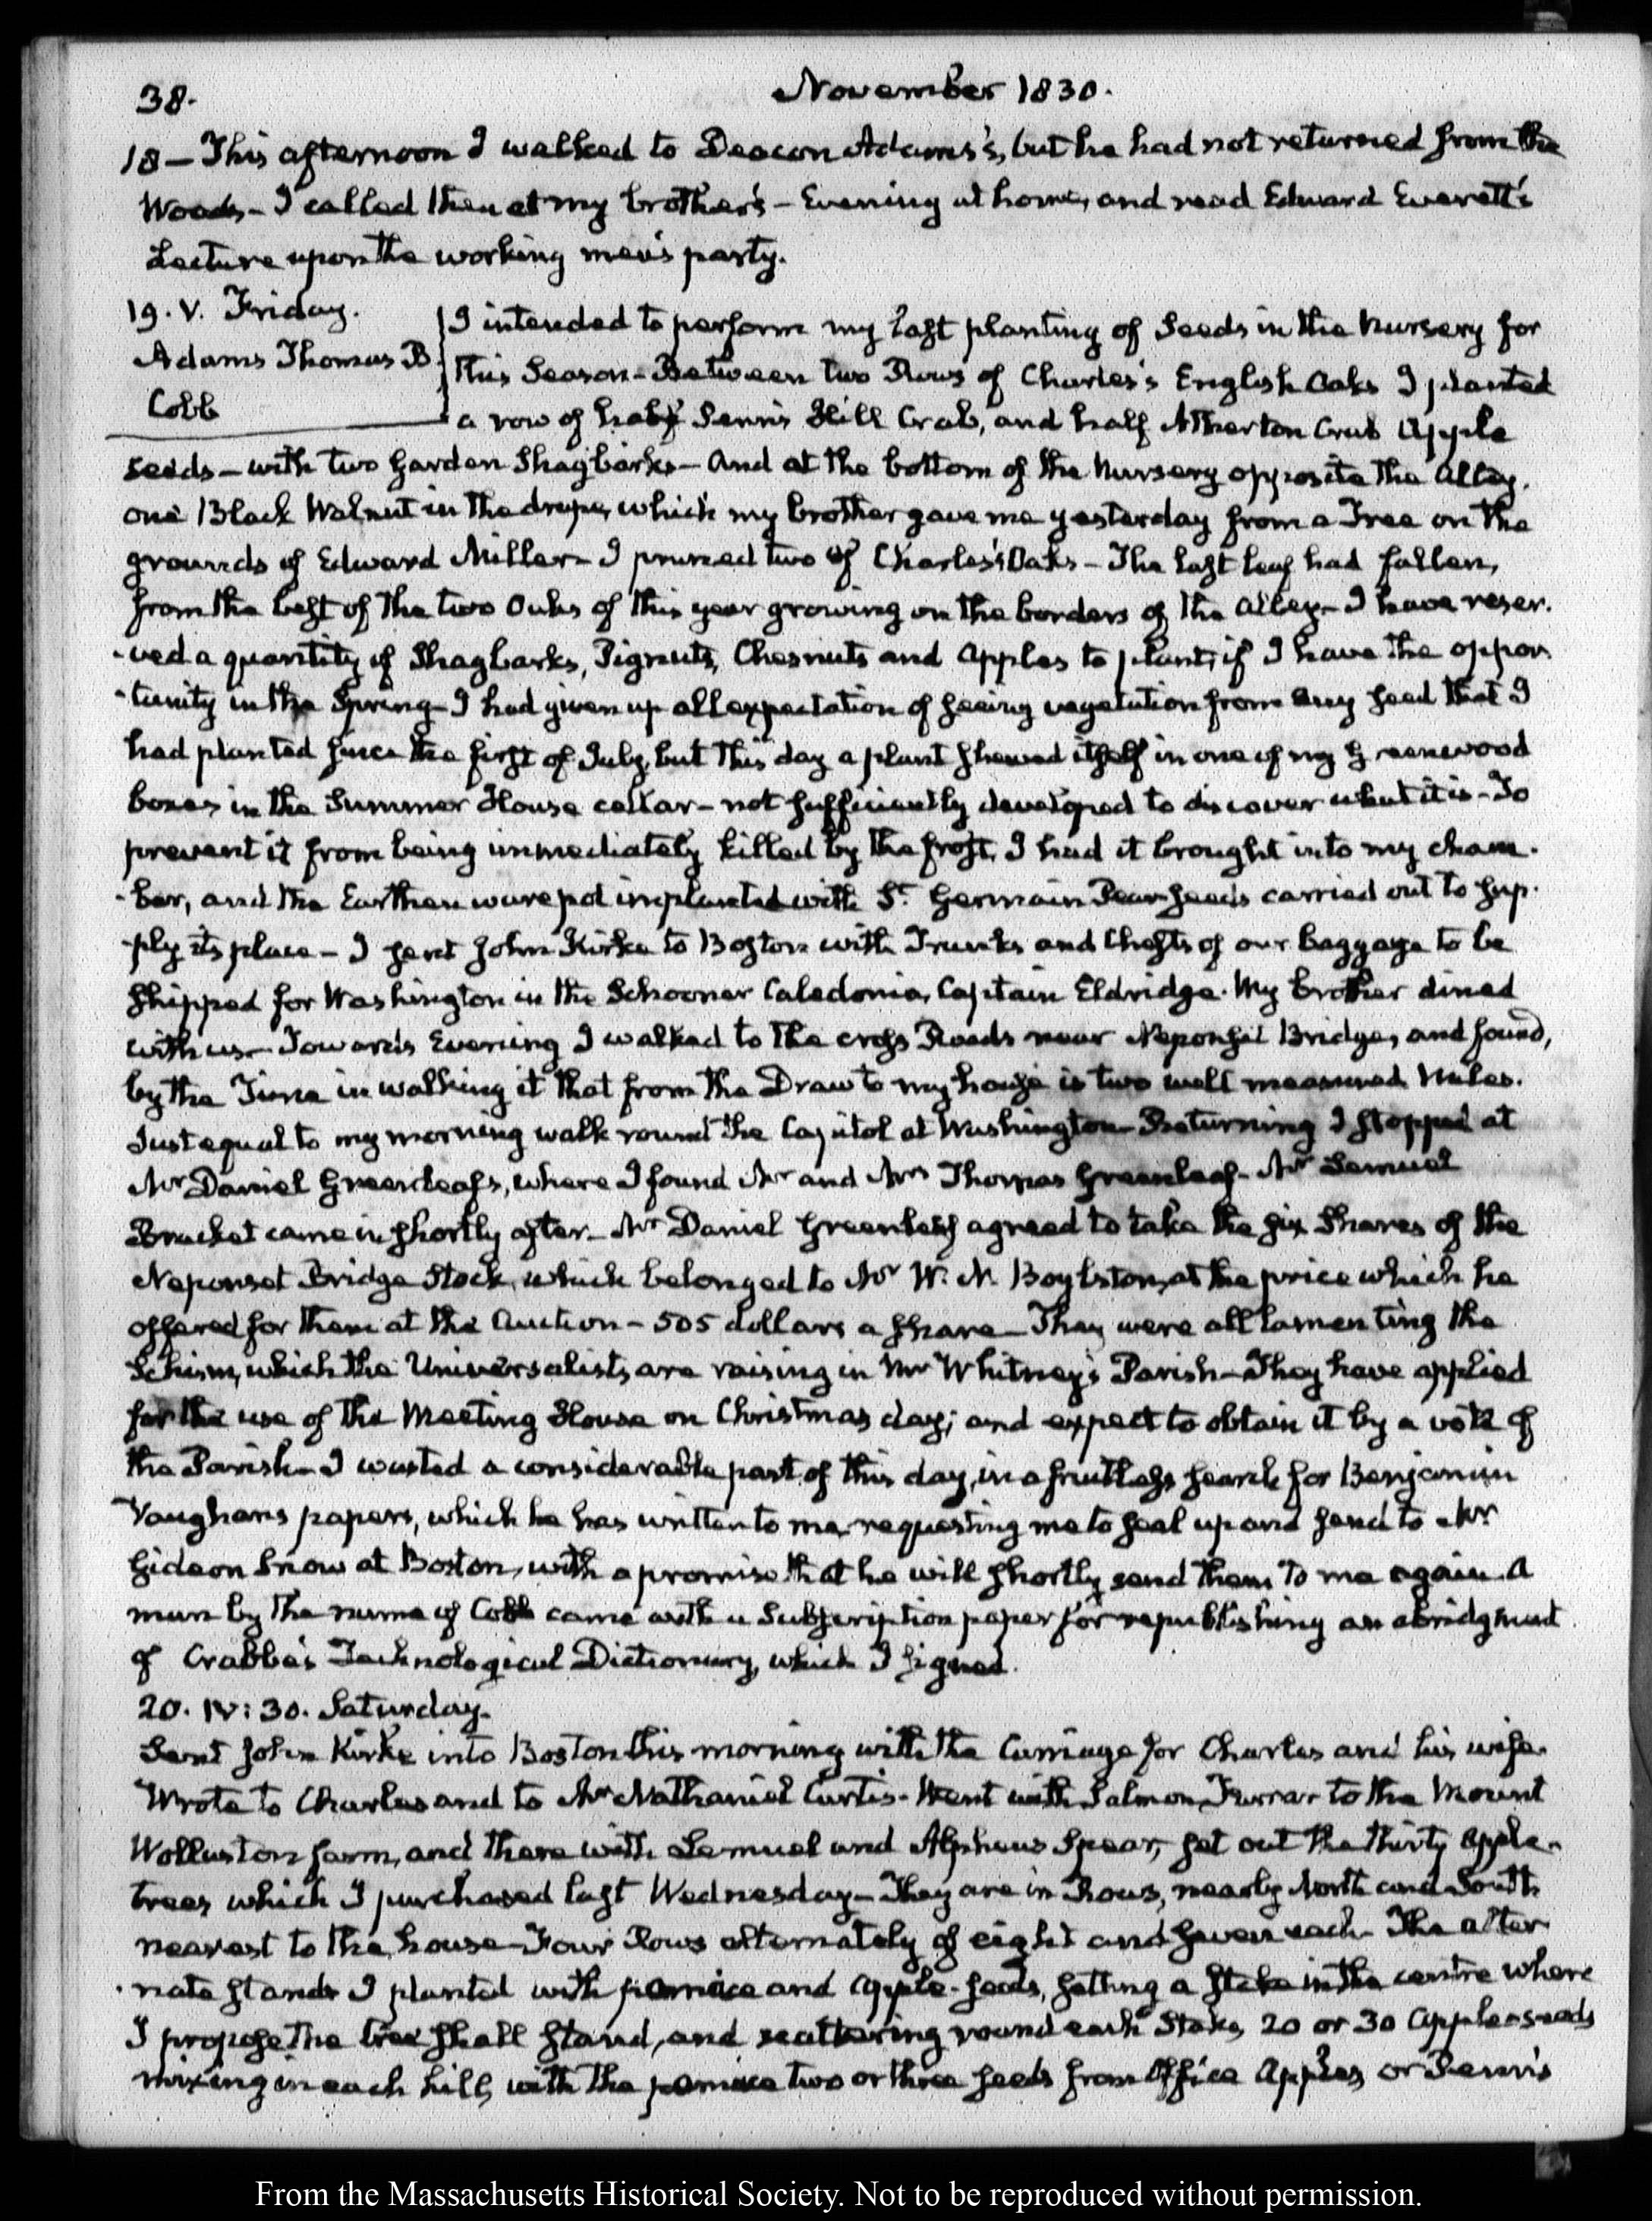 38.
November 1830.
18 — This afternoon I walked to Deacon Adams's, but he had not returned from the
Woods - I called then at my brother's - Evening at home, and read Edward Everett's
Lecture upon the working men's party.
19. V. Friday.
Adams Thomas B.
Cobb
I intended to perform my last planting of Seeds in the Nursery for
this Season - Between two Rows of Charles's English Oaks I planted
a row of half Penn's Hill Crab, and half Atherton Crab Apple
seeds - with two Garden Shagbarks - And at the bottom of the Nursery opposite the Alley,
one Black Walnut in the drupe, which my brother gave me yesterday from a Tree on the
grounds of Edward Miller - I pruned two of Charles's Oaks - The last leaf had fallen,
from the best of the two Oaks of this year growing on the borders of the Alley - I have reser-
-ved a quantity of Shagbarks, Pignuts, Chesnuts and Apples to plant, if I have the oppor-
-tunity in the Spring - I had given up all expectation of seeing vegetation from any seed that I
had planted since the first of July, but this day a plant shewed itself in one of my Greenwood
boxes in the Summer House cellar - not sufficiently developed to discover what it is - To
prevent it from being immediately killed by the frost, I had it brought into my cham-
-ber, and the Earthen ware pot implanted with St. Germain Pear seeds carried out to sup-
-ply its place - I sent John Kirke to Boston with Trunks and Chests of our baggage to be
shipped for Washington in the Schooner Caledonia, Captain Eldridge. My brother dined
with us - Towards Evening I walked to the cross Roads near Neponset Bridge, and found,
by the Time in walking it that from the Draw to my house is two well measured Miles.
Just equal to my morning walk round the Capitol at Washington - Returning I stopped at
Mr Daniel Greenleaf's, where I found Mr and Mrs Thomas Greenleaf - Mr Lemuel
Bracket came in shortly after - Mr Daniel Greenleaf agreed to take the six Shares of the
Neponset Bridge Stock, which belonged to Mr W. N. Boylston, at the price which he
offered for them at the Auction - 505 dollars a share - They were all lamenting the
Schism, which the Universalists are raising in Mr Whitney's Parish - They have applied
for the use of the Meeting House on Christmas day; and expect to obtain it by a vote of
the Parish - I wasted a considerable part of this day, in a fruitless search for Benjamin
Vaughan's papers, which he has written to me requesting me to seal up and send to Mr
Gideon Snow at Boston, with a promise that he will shortly send them to me again. A
man by the name of Cobb came with a Subscription paper for republishing an abridgment
of Crabbe's Technological Dictionary, which I signed.
20. IV: 30. Saturday.
Sent John Kirke into Boston this morning with the Carriage for Charles and his wife.
Wrote to Charles and to Mr Nathaniel Curtis. Went with Salmon Farrar to the Mount
Wollaston farm, and there with Lemuel and Alpheus Spear, set out the thirty Apple-
trees which I purchased last Wednesday - They are in Rows, nearly North and South
nearest to the house - Four Rows alternately of eight and seven each - The alter-
-nate stands I planted with pomice and Apple-seeds, setting a stake in the centre where
I propose the tree shall stand, and scattering round each Stake, 20 or 30 Apple-seeds
mixing in each hill, with the pomice two or three seeds from Office Apples, or Penn's
From the Massachusetts Historical Society. Not to be reproduced without permission.